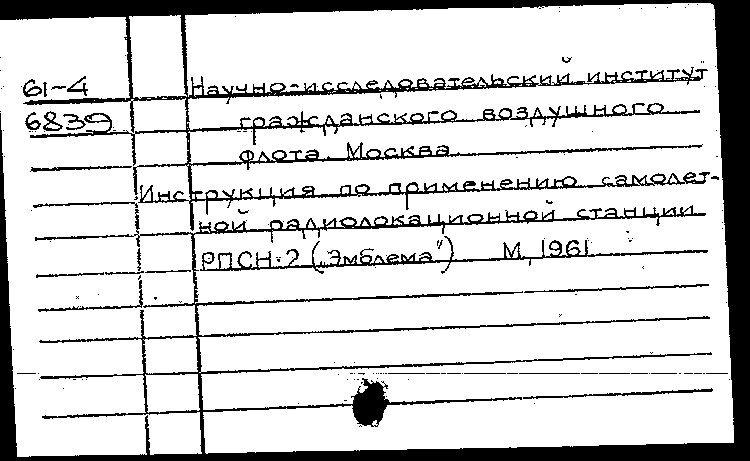 61-4 Научно-исследовательский институт
6839 гражданского воздушного
флота. Москва
Инструкция по применению самолет-
ной радиолокационной станции
РПСН-2 („Эмблема") М, 1961